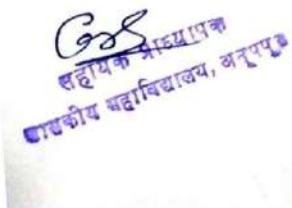 सहायक प्राध्यापक
शासकीय महाविद्यालय, अनूपपुर